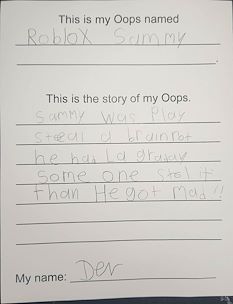 This is my Oops named
Roblox Sammy
This is the story of my Oops.
Sammy was Play
steal a brainrot
he had La
some one stol it
than He got mad!!
My name: Dev